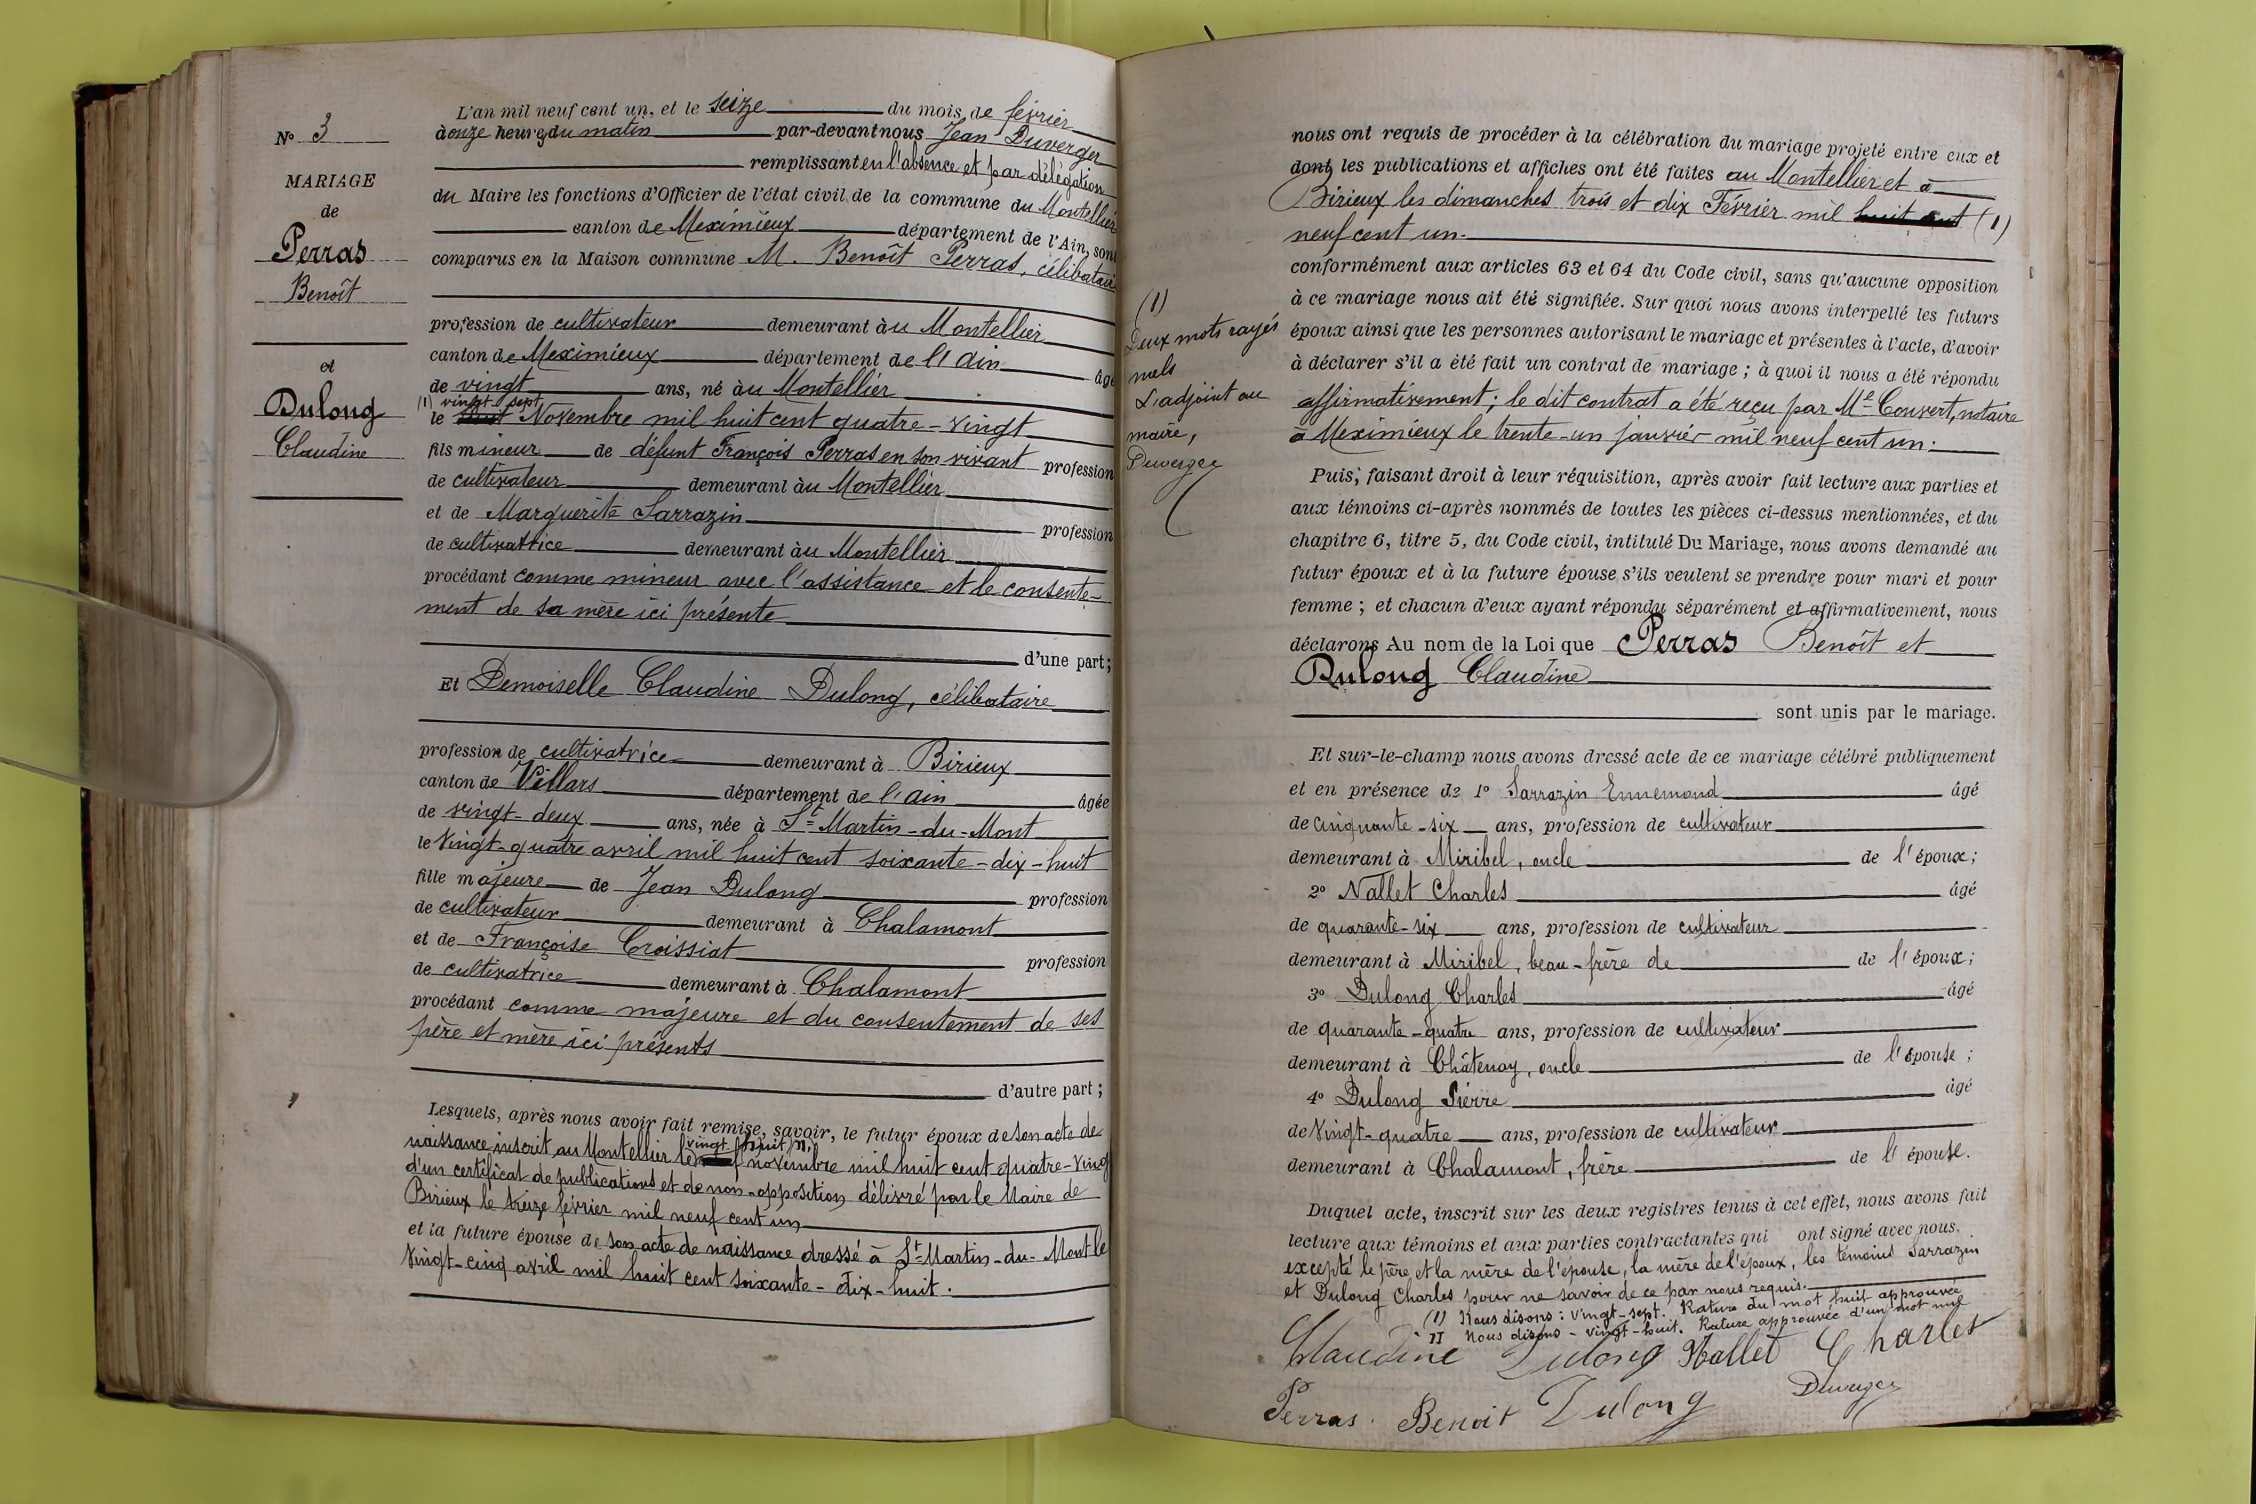 N° 3
MARIAGE
de
Perras
Benoît
et
Dulong
Claudine
L'an mil neuf cent un, et le seize du mois de février
à onze heures du matin par-devant nous Jean Duverger
remplissant en l'absence et par délégation
du Maire les fonctions d'Officier de l'état civil de la commune du Montellier
canton de Meximieux département de l'Ain, sont
comparus en la Maison commune M. Benoît Perras, célibataire
profession de cultivateur demeurant au Montellier
canton de Meximieux département de l'Ain âgé
de vingt ans, né au Montellier
(1) vingt sept
le huit Novembre mil huit cent quatre-vingt
fils mineur de défunt François Perras en son vivant profession
de cultivateur demeurant au Montellier
et de Marguerite Sarrazin profession
de cultivatrice demeurant au Montellier
procédant comme mineur avec l'assistance et le consente-
ment de sa mère ici présente
d'une part;
Et Demoiselle Claudine Dulong, célibataire
profession de cultivatrice demeurant à Birieux
canton de Villars département de l'ain âgée
de vingt-deux ans, née à St Martin-du-Mont
le Vingt-quatre avril mil huit cent soixante-dix-huit
fille majeure de Jean Dulong profession
de cultivateur demeurant à Chalamont
et de Françoise Croissiat profession
de cultivatrice demeurant à Chalamont
procédant comme majeure et du consentement de ses
père et mère ici présents
d'autre part;
Lesquels, après nous avoir fait remise, savoir, le futur époux de son acte de
vingt huit
naissance inscrit au Montellier le novembre mil huit cent quatre-vingt
d'un certificat de publications et de non-opposition délivré par le Maire de
Birieux le treize février mil neuf cent un
et la future épouse de son acte de naissance dressé à St Martin-du-Mont le
Vingt-cinq avril mil huit cent soixante-dix-huit.
nous ont requis de procéder à la célébration du mariage projeté entre eux et
dont les publications et affiches ont été faites au Montellier et à
Birieux les dimanches trois et dix Février mil huit cent (1)
neuf cent un.
conformément aux articles 63 et 64 du Code civil, sans qu'aucune opposition
à ce mariage nous ait été signifiée. Sur quoi nous avons interpellé les futurs
époux ainsi que les personnes autorisant le mariage et présentes à l'acte, d'avoir
à déclarer s'il a été fait un contrat de mariage; à quoi il nous a été répondu
affirmativement; le dit contrat a été reçu par Me Convert, notaire
à Meximieux le trente-un janvier mil neuf cent un.
(1)
Deux mots rayés
nuls
L'adjoint au
maire,
Duverger
Puis, faisant droit à leur réquisition, après avoir fait lecture aux parties et
aux témoins ci-après nommés de toutes les pièces ci-dessus mentionnées, et du
chapitre 6, titre 5, du Code civil, intitulé Du Mariage, nous avons demandé au
futur époux et à la future épouse s'ils veulent se prendre pour mari et pour
femme; et chacun d'eux ayant répondu séparément et affirmativement, nous
déclarons Au nom de la Loi que Perras Benoît et
Dulong Claudine
sont unis par le mariage.
Et sur-le-champ nous avons dressé acte de ce mariage célébré publiquement
et en présence de 1° Sarrazin Ennemond âgé
de cinquante-six ans, profession de cultivateur
demeurant à Miribel, oncle de l'époux;
2° Nallet Charles âgé
de quarante-six ans, profession de cultivateur
demeurant à Miribel, beau-frère de de l'époux;
3° Dulong Charles âgé
de quarante-quatre ans, profession de cultivateur
demeurant à Châtenay, oncle de l'épouse;
4° Dulong Pierre âgé
de Vingt-quatre ans, profession de cultivateur
demeurant à Chalamont, frère de l'épouse.
Duquel acte, inscrit sur les deux registres tenus à cet effet, nous avons fait
lecture aux témoins et aux parties contractantes qui ont signé avec nous.
excepté le père et la mère de l'épouse, la mère de l'époux, les témoins Sarrazin
et Dulong Charles pour ne savoir de ce par nous requis.
(1) Nous disons: vingt-sept. Rature du mot huit approuvée
II Nous disons - vingt-huit. Rature approuvée d'un mot nul
Claudine Dulong Nallet Charles
Perras Benoit Dulong Duverger